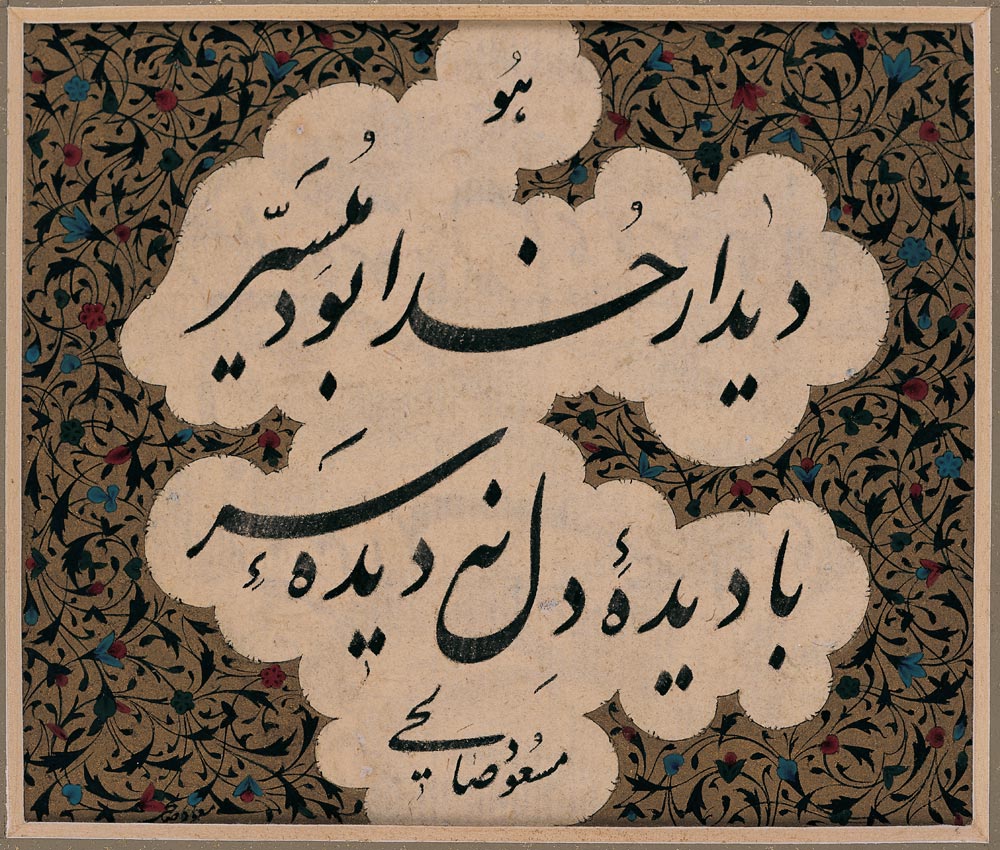 هُو
دیدار خُدا بُوَد مُیَسَّر
با دیدهٔ دل نه دیدهٔ سَر
مسعُود صالحی